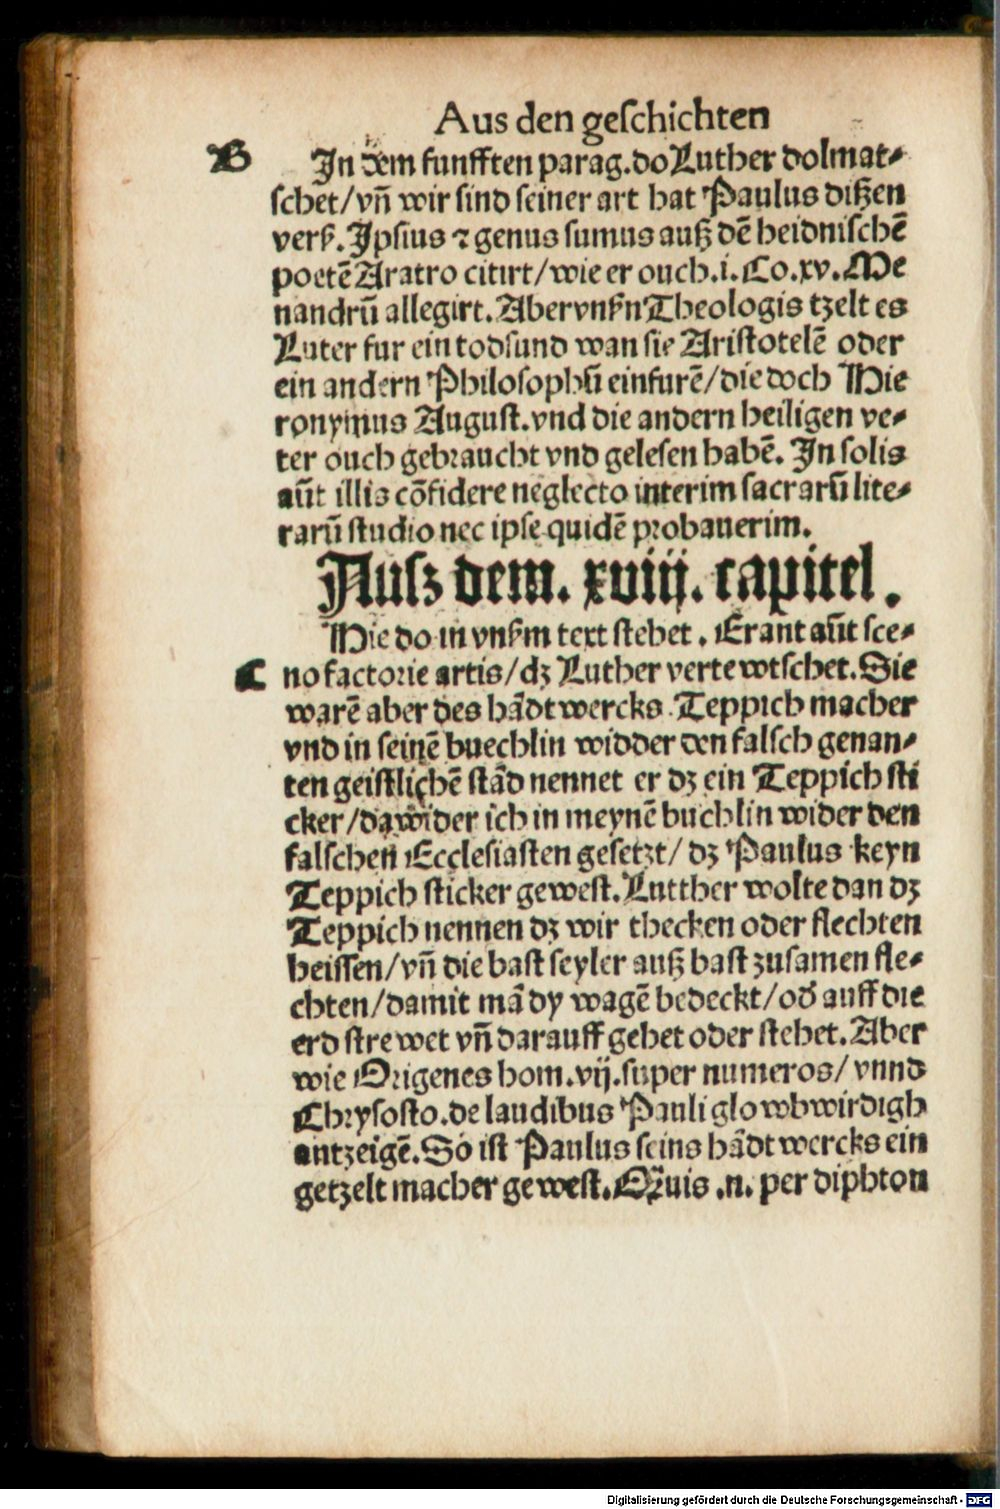 Aus den geschichten
B
In dem funfften parag. do Luther dolmat⸗
schet/ vñ wir sind seiner art hat Paulus dißen
verß. Ipsius ⁊ genus sumus auß dē heidnischē
poetē Aratro citirt/ wie er ouch. i. Co. xv. Me
nandrū allegirt. Aber vnßn Theologis tzelt es
Luter fur ein todsund wan sie Aristotelē oder
ein andern Philosophū einfurē/ die doch Hie
ronymus August. vnd die andern heiligen ve⸗
ter ouch gebraucht vnd gelesen habē. In solis
aūt illis cōfidere neglecto interim sacrarū lite⸗
rarū studio nec ipse quidē probauerim.
Ausz dem. xviij. capitel.
Hie do in vnßm text stehet. Erant aūt sce⸗
C
no factorie artis/ dz Luther vertewtschet. Sie
warē aber des hādtwercks Teppich macher
vnd in seinē buechlin widder den falsch genan⸗
ten geistlichē stād nennet er dz ein Teppich sti
cker/ dawider ich in meynē buchlin wider den
falschen Ecclesiasten gesetzt/ dz Paulus keyn
Teppich sticker gewest. Lutther wolte dan dz
Teppich nennen dz wir thecken oder flechten
heissen/ vñ die bast seyler auß bast zusamen fle⸗
chten/ damit mā dy wagē bedeckt/ od̄ auff die
erd strewet vñ darauff gehet oder stehet. Aber
wie Origenes hom. vij. super numeros/ vnnd
Chrysosto. de laudibus Pauli glowbwirdigh
antzeigē. So ist Paulus seins hādtwercks ein
getzelt macher gewest. Q̄uis .n. per diphton
Digitalisierung gefördert durch die Deutsche Forschungsgemeinschaft - DFG